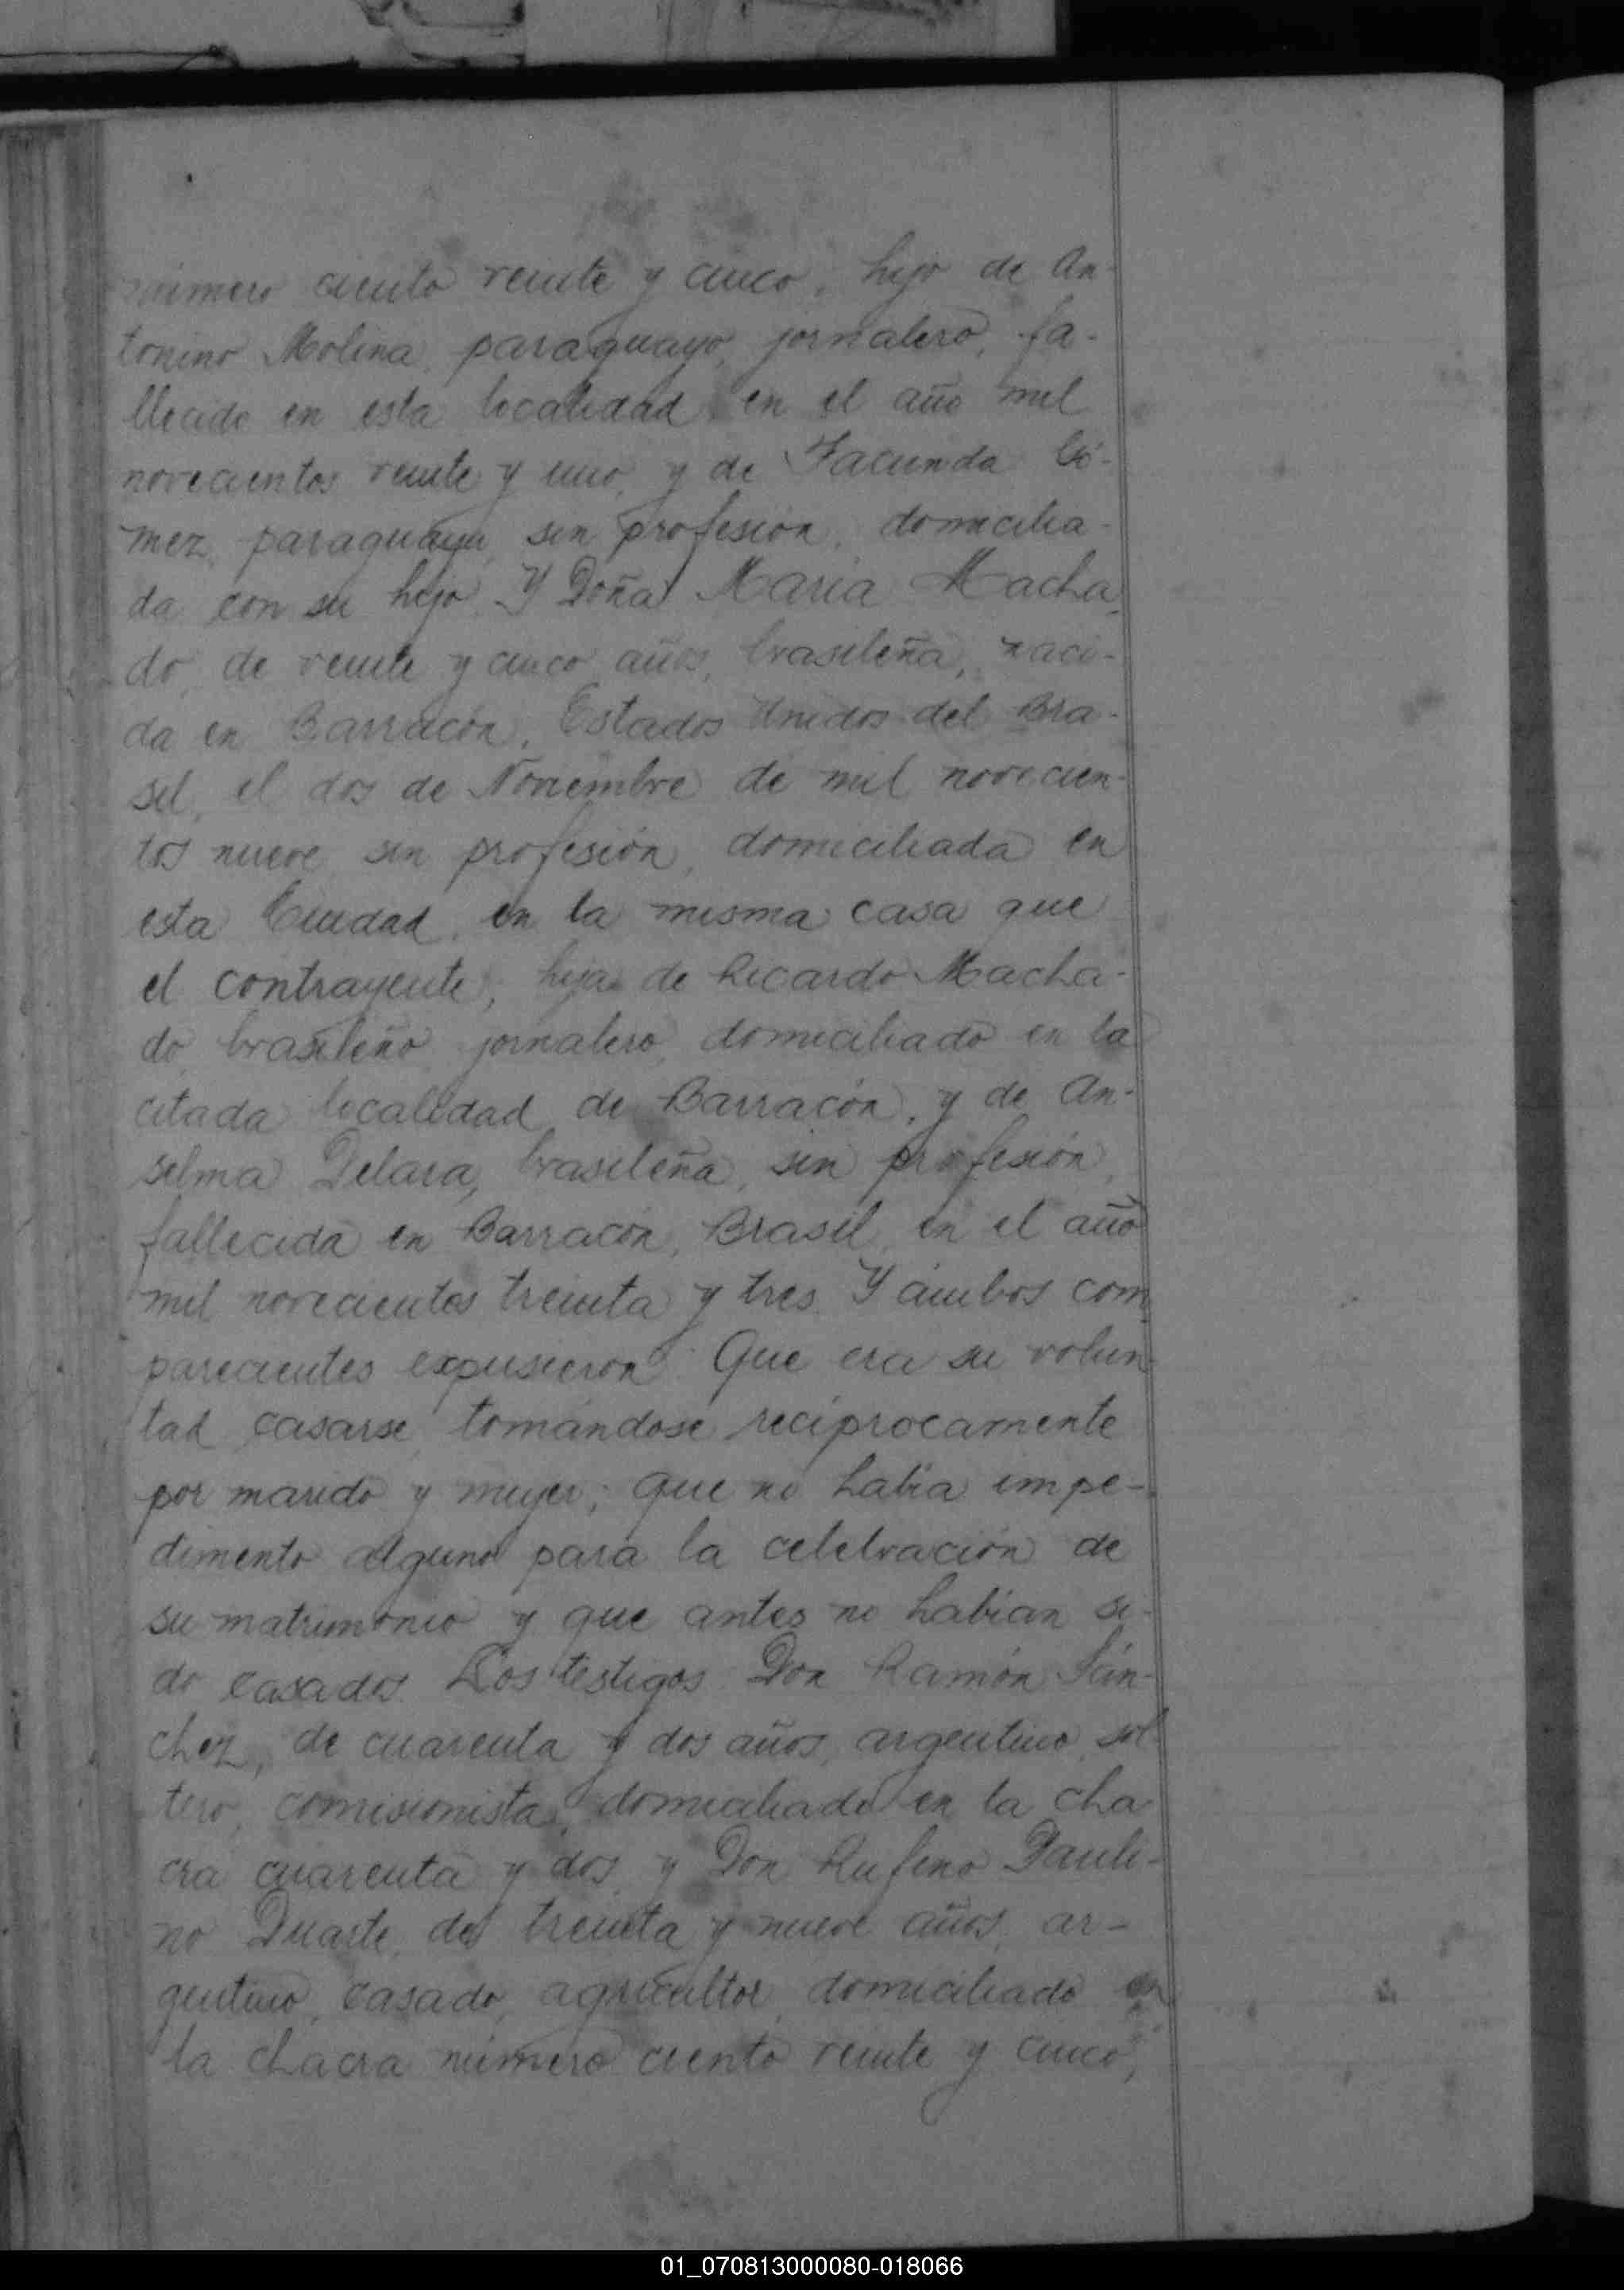 número ciento veinte y cinco, hijo de An-
tonino Molina, paraguayo, jornalero, fa-
llecido en esta localidad en el año mil
novecientos veinte y uno, y de Facunda Gó-
mez, paraguaya, sin profesión, domicilia-
da con su hijo. Y Doña María Macha-
do, de veinte y cinco años, brasileña, naci-
da en Barracón, Estados Unidos del Bra-
sil, el dos de Noviembre de mil novecien-
tos nueve, sin profesión, domiciliada en
esta Ciudad, en la misma casa que
el contrayente, hija de Ricardo Macha-
do, brasileño, jornalero, domiciliado en la
citada localidad de Barracón, y de An-
selma Delara, brasileña, sin profesión,
fallecida en Barracón, Brasil, en el año
mil novecientos treinta y tres. Y ámbos com-
parecientes expusieron: Que era su volun-
tad casarse tomándose recíprocamente
por marido y mujer; que no había impe-
dimento alguno para la celebración de
su matrimonio y que antes no habían si-
do casados. Los testigos Don Ramón Sán-
chez, de cuarenta y dos años, argentino, sol-
tero, comisionista, domiciliado en la cha-
cra cuarenta y dos, y Don Rufino Pauli-
no Duarte, de treinta y nueve años, ar-
gentino, casado, agricultor, domiciliado en
la chacra número ciento veinte y cinco,
01_070813000080-018066